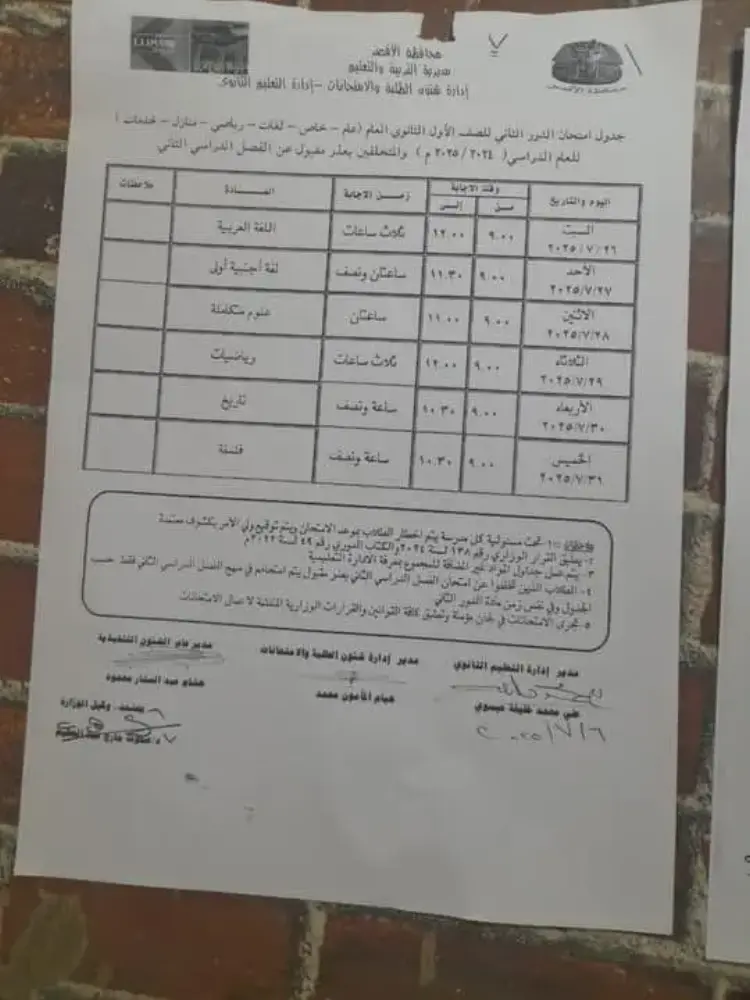 محافظة الأقصر
مديرية التربية والتعليم
إدارة شئون الطلبة والامتحانات – إدارة التعليم الثانوى
جدول امتحان الدور الثاني للصف الأول الثانوي العام (عام – خاص – لغات – رياضي – منازل – خدمات)
للعام الدراسي ( ٢٠٢٤ / ٢٠٢٥ م ) والمتخلفين بعذر مقبول عن الفصل الدراسي الثاني.
اليوم والتاريخ وقت الاجابة زمن الاجابة المادة ملاحظات
من إلى
السبت ٢٠٢٥/٧/٢٦ ٩.٠٠ ١٢.٠٠ ثلاث ساعات اللغة العربية
الأحد ٢٠٢٥/٧/٢٧ ٩.٠٠ ١١.٣٠ ساعتان ونصف لغة أجنبية أولى
الاثنين ٢٠٢٥/٧/٢٨ ٩.٠٠ ١١.٠٠ ساعتان علوم متكاملة
الثلاثاء ٢٠٢٥/٧/٢٩ ٩.٠٠ ١٢.٠٠ ثلاث ساعات رياضيات
الأربعاء ٢٠٢٥/٧/٣٠ ٩.٠٠ ١٠.٣٠ ساعة ونصف تاريخ
الخميس ٢٠٢٥/٧/٣١ ٩.٠٠ ١٠.٣٠ ساعة ونصف فلسفة
ملاحظات ١- تحت مسئولية كل مدرسة يتم اخطار الطلاب بموعد الامتحان ويتم توقيع ولي الأمر بكشوف معتمدة
٢- يطبق القرار الوزاري رقم ١٣٨ لسنة ٢٠٢٤ والكتاب الدوري رقم ٢٩ لسنة ٢٠٢٢م
٣- يتم عمل جداول المواد غير المضافة للمجموع بمعرفة الادارة التعليمية
٤- الطلاب الذين تخلفوا عن امتحان الفصل الدراسي الثاني بعذر مقبول يتم امتحانهم في منهج الفصل الدراسي الثاني فقط حسب
الجدول وفي نفس زمن مادة الدور الثاني
٥- تجرى الامتحانات في لجان مؤمنة وتطبق كافة القوانين والقرارات الوزارية المنظمة لاعمال الامتحانات
مدير إدارة التعليم الثانوي
علي محمد خليفة عيسوي
٢٠٢٥/٧/٦
مدير إدارة شئون الطلبة والامتحانات
هيام المأمون محمد
مدير عام الشئون التنفيذية
هشام عبد الستار محمود
يعتمد، وكيل الوزارة